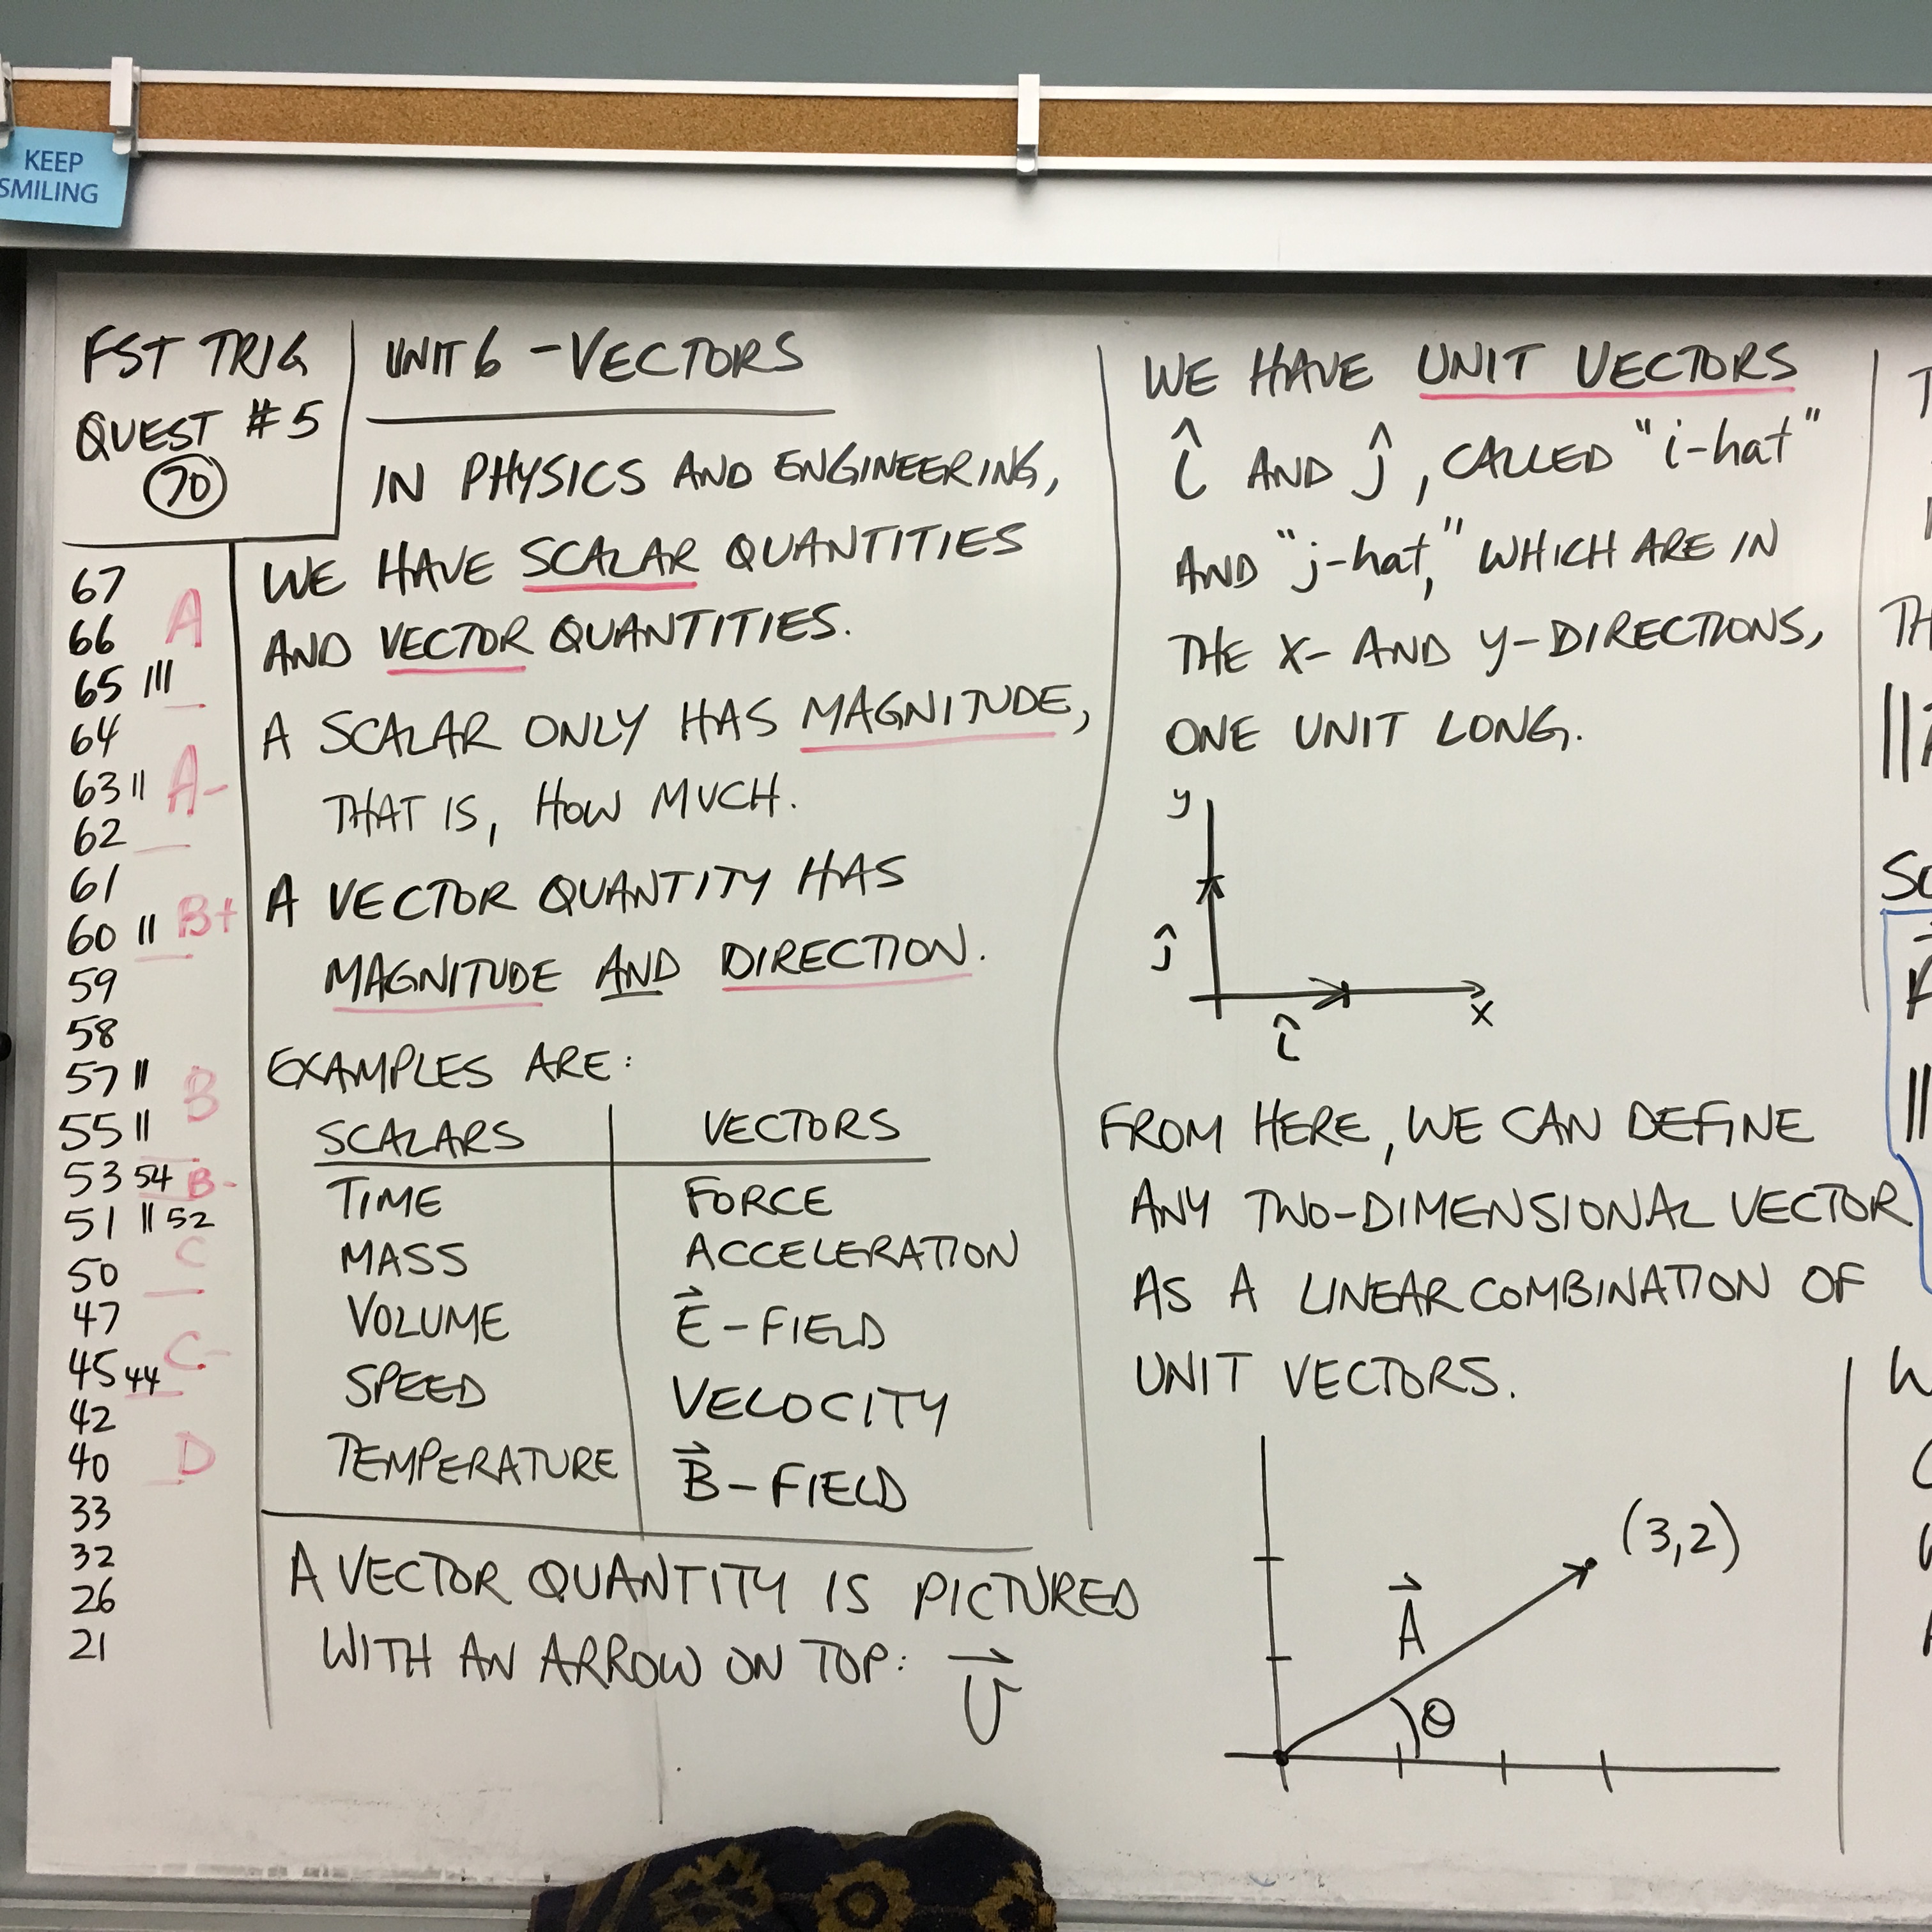 KEEP
SMILING
FST TRIG
QUEST #5
70
67
66 A
65 |||
64
63 || A-
62
61
60 || B+
59
58
57 || B
55 ||
53 54 B-
51 || 52
C
50
47
C-
45 44
42
40 D
33
32
26
21
UNIT 6 - VECTORS
IN PHYSICS AND ENGINEERING,
WE HAVE SCALAR QUANTITIES
AND VECTOR QUANTITIES.
A SCALAR ONLY HAS MAGNITUDE,
THAT IS, HOW MUCH.
A VECTOR QUANTITY HAS
MAGNITUDE AND DIRECTION.
EXAMPLES ARE:
SCALARS VECTORS
TIME FORCE
MASS ACCELERATION
VOLUME E⃗ - FIELD
SPEED VELOCITY
TEMPERATURE B⃗ - FIELD
A VECTOR QUANTITY IS PICTURED
WITH AN ARROW ON TOP: U⃗
WE HAVE UNIT VECTORS
î AND ĵ, CALLED "i-hat"
AND "j-hat," WHICH ARE IN
THE X- AND Y-DIRECTIONS,
ONE UNIT LONG.
y
ĵ
x
î
FROM HERE, WE CAN DEFINE
ANY TWO-DIMENSIONAL VECTOR
AS A LINEAR COMBINATION OF
UNIT VECTORS.
(3,2)
A⃗
θ